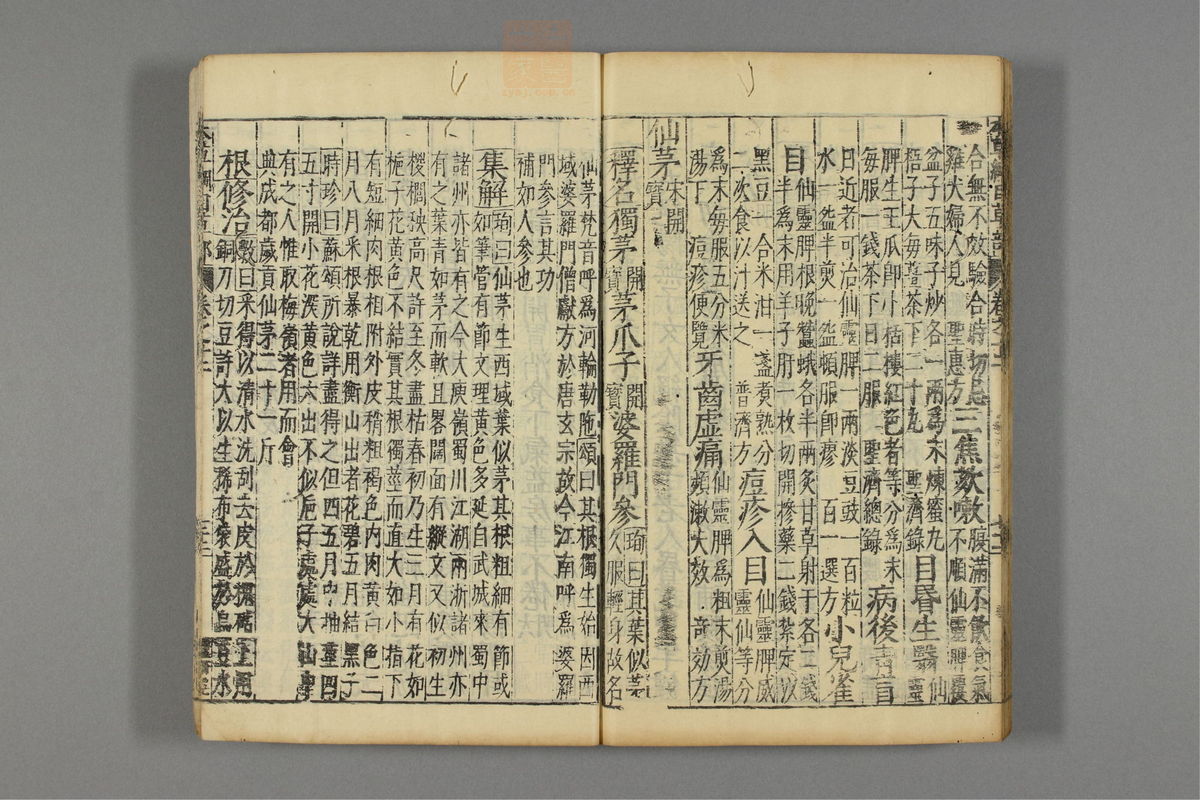 合無不效驗合時切忌
雞犬婦人見 聖惠方
三焦欬嗽
腹滿不飲食氣
不順仙靈脾覆
盆子五味子炒各一兩爲末煉蜜丸
梧子大每薑茶下二十丸 聖濟錄
目昏生翳
仙靈
脾生王瓜即小栝樓紅色者等分爲末
每服一錢茶下日二服 聖濟總錄
病後青盲
日近者可治仙靈脾一兩淡豆豉一百粒
水一盌半煎一盌頓服即瘳 百一選方
小兒雀目
仙靈脾根晚蠶蛾各半兩炙甘草射干各二錢
半爲末用羊子肝一枚切開摻藥二錢紮定以
黑豆一合米泔一盞煮熟分
二次食以汁送之 普濟方
痘疹入目
仙靈脾威
靈仙等分
爲末每服五分米
湯下 痘疹便覽
牙齒虚痛
仙靈脾爲粗末煎湯
頻漱大效 奇効方
仙茅
宋開
寶
釋名獨茅
開
寶
茅爪子
開
寶
婆羅門參
珣曰其葉似茅
久服輕身故名
仙茅梵音呼爲河輪勒陁頌曰其根獨生始因西
域婆羅門僧獻方於唐玄宗故今江南呼爲婆羅
門參言其功
補如人參也
集解
珣曰仙茅生西域葉似茅其根粗細有節或
如筆管有節文理黄色多延自武城來蜀中
諸州亦皆有之今大庾嶺蜀川江湖兩浙諸州亦
有之葉青如茅而軟且畧闊面有縱文又似初生
椶櫚秧高尺許至冬盡枯春初乃生三月有花如
梔子花黄色不結實其根獨莖而直大如小指下
有短細肉根相附外皮稍粗褐色内肉黄白色二
月八月采根暴乾用衡山出者花碧五月結黑子
時珍曰蘇頌所說詳盡得之但四五月中抽莖四
五寸開小花深黄色六出不似梔子處處大山中
有之人惟取梅嶺者用而會
典成都歲貢仙茅二十一斤
根修治
斆曰采得以清水洗刮去皮於槐砧上用
銅刀切豆許大以生稀布袋盛於烏豆水